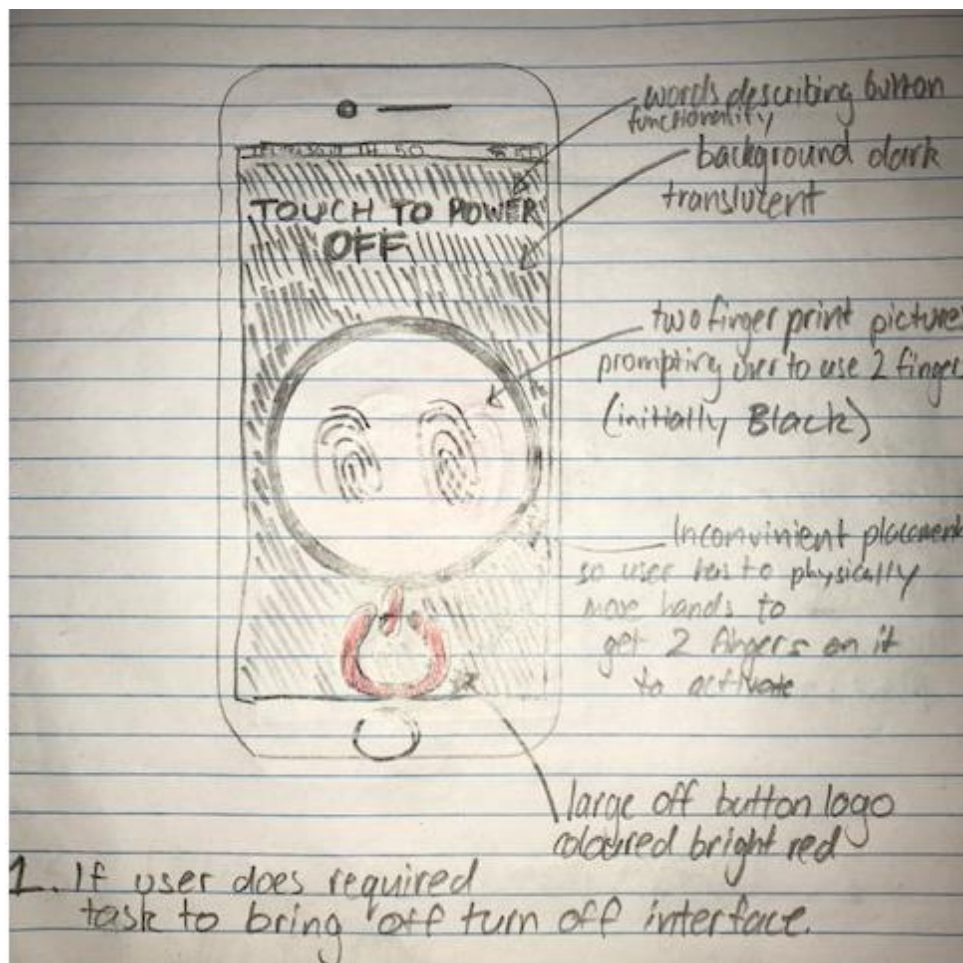 words describing button
functionality
background dark
translucent
TOUCH TO POWER
OFF
two finger print pictures
prompting user to use 2 finger
(initially Black)
Inconvinient placment
so user has to physically
move hands to
get 2 fingers on it
to activate
large off button logo
coloured bright red
1. If user does required
task to bring off turn off interface.